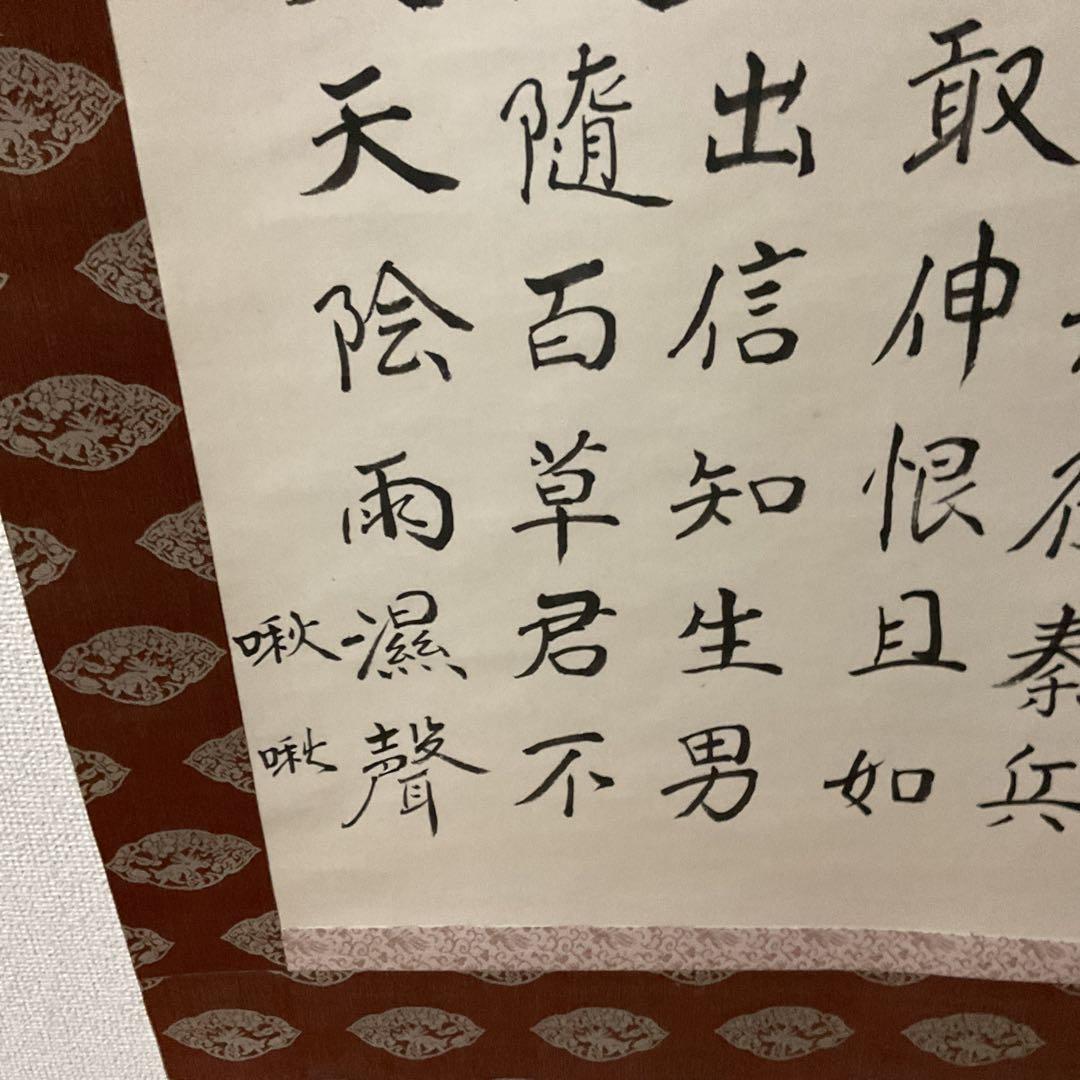 秦兵
敢伸恨且如
出信知生男
隨百草君不
天陰雨濕聲
啾啾